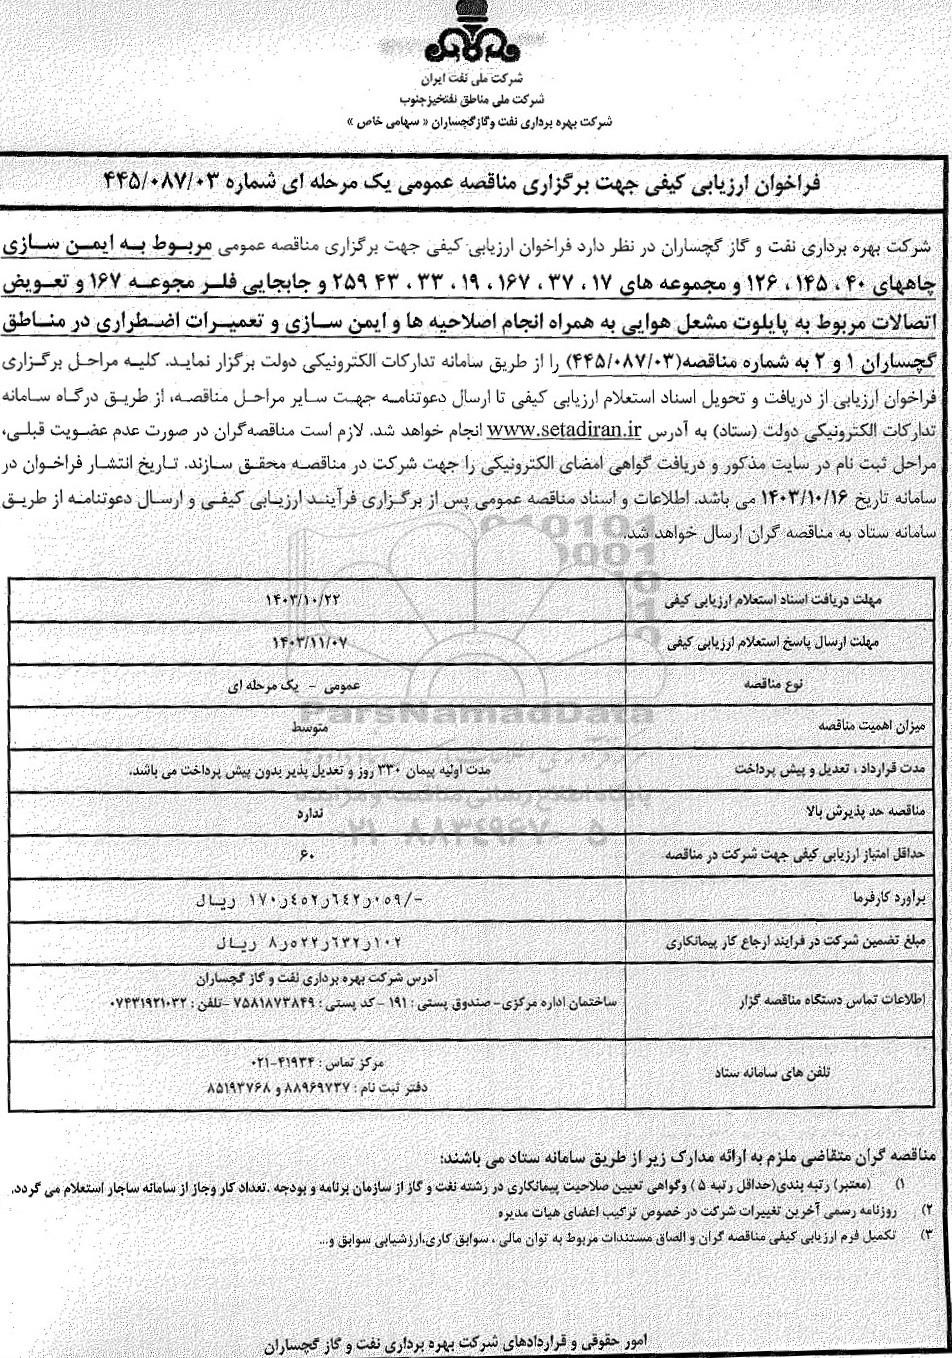 شرکت ملی نفت ایران
شرکت ملی مناطق نفتخیز جنوب
شرکت بهره برداری نفت و گاز گچساران « سهامی خاص »
فراخوان ارزیابی کیفی جهت برگزاری مناقصه عمومی یک مرحله ای شماره ۴۴۵/۰۸۷/۰۳
شرکت بهره برداری نفت و گاز گچساران در نظر دارد فراخوان ارزیابی کیفی جهت برگزاری مناقصه عمومی مربوط به ایمن سازی
چاههای ۴۰ ، ۱۴۵ ، ۱۲۶ و مجموعه های ۱۷ ، ۳۷ ، ۱۶۷ ، ۱۹ ، ۳۳ ، ۴۳ ۲۵۹ و جابجایی فلر مجوعه ۱۶۷ و تعویض
اتصالات مربوط به پایلوت مشعل هوایی به همراه انجام اصلاحیه ها و ایمن سازی و تعمیرات اضطراری در مناطق
گچساران ۱ و ۲ به شماره مناقصه(۴۴۵/۰۸۷/۰۳) را از طریق سامانه تدارکات الکترونیکی دولت برگزار نماید. کلیه مراحل برگزاری
فراخوان ارزیابی از دریافت و تحویل اسناد استعلام ارزیابی کیفی تا ارسال دعوتنامه جهت سایر مراحل مناقصه، از طریق درگاه سامانه
تدارکات الکترونیکی دولت (ستاد) به آدرس www.setadiran.ir انجام خواهد شد. لازم است مناقصه‌گران در صورت عدم عضویت قبلی،
مراحل ثبت نام در سایت مذکور و دریافت گواهی امضای الکترونیکی را جهت شرکت در مناقصه محقق سازند. تاریخ انتشار فراخوان در
سامانه تاریخ ۱۴۰۳/۱۰/۱۶ می باشد. اطلاعات و اسناد مناقصه عمومی پس از برگزاری فرآیند ارزیابی کیفی و ارسال دعوتنامه از طریق
سامانه ستاد به مناقصه گران ارسال خواهد شد.
مهلت دریافت اسناد استعلام ارزیابی کیفی ۱۴۰۳/۱۰/۲۲
مهلت ارسال پاسخ استعلام ارزیابی کیفی ۱۴۰۳/۱۱/۰۷
نوع مناقصه عمومی - یک مرحله ای
ParsNamadData
میزان اهمیت مناقصه متوسط
مدت قرارداد ، تعدیل و پیش پرداخت مدت اولیه پیمان ۳۳۰ روز و تعدیل پذیر بدون پیش پرداخت می باشد.
پایگاه اطلاع رسانی مناقصه و مزایده
مناقصه حد پذیرش بالا ندارد
۰۲۱-۸۸۳۴۹۶۷۰-۵
حداقل امتیاز ارزیابی کیفی جهت شرکت در مناقصه ۶۰
برآورد کارفرما ۱۷۰٫۴۵۲٫۶۴۲٫۰۵۹/- ریال
مبلغ تضمین شرکت در فرایند ارجاع کار پیمانکاری ۸٫۵۲۲٫۶۳۲٫۱۰۲ ریال
اطلاعات تماس دستگاه مناقصه گزار آدرس شرکت بهره برداری نفت و گاز گچساران
ساختمان اداره مرکزی- صندوق پستی : ۱۹۱ - کد پستی : ۷۵۸۱۸۷۳۸۴۹ -تلفن : ۰۷۴۳۱۹۲۱۰۳۲
تلفن های سامانه ستاد مرکز تماس : ۴۱۹۳۴-۰۲۱
دفتر ثبت نام : ۸۸۹۶۹۷۳۷ و ۸۵۱۹۳۷۶۸
مناقصه گران متقاضی ملزم به ارائه مدارک زیر از طریق سامانه ستاد می باشند:
۱) (معتبر) رتبه بندی(حداقل رتبه ۵ ) وگواهی تعیین صلاحیت پیمانکاری در رشته نفت و گاز از سازمان برنامه و بودجه .تعداد کار وجاز از سامانه ساجار استعلام می گردد.
۲) روزنامه رسمی آخرین تغییرات شرکت در خصوص ترکیب اعضای هیات مدیره
۳) تکمیل فرم ارزیابی کیفی مناقصه گران و الصاق مستندات مربوط به توان مالی ، سوابق کاری،ارزشیابی سوابق و...
امور حقوقی و قراردادهای شرکت بهره برداری نفت و گاز گچساران